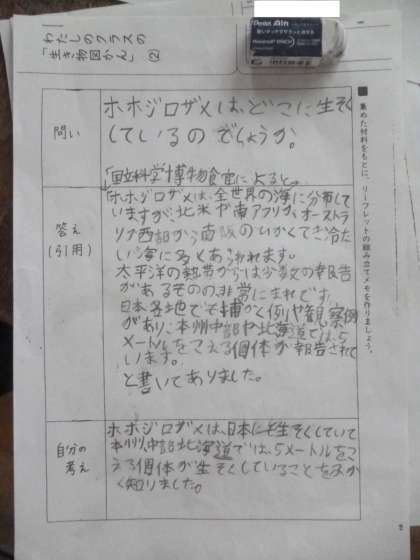 わたしのクラスの
「生き物図かん」(2)
Pentel Ain
■ 集めた材料をもとに、リーフレットの組み立てメモを作りましょう。
問い
ホホジロザメは、どこに生そく
しているのでしょうか。
答え
(引用)
「国立科学博物館によると。
「ホホジロザメは、全世界の海に分布して
いますが、北米や南アフリカ、オーストラ
リア西部から南
のひかくてき冷た
い海に多くあらわれます。
太平洋の熱帯からは少数の報告
があるものの非常にまれです。
日本各地でも捕かく例や観察例
があり、本州中部や北海道では、5
メートルをこえる個体が報告されて
います。
と書いてありました。
自分の
考え
ホホジロザメは、日本にも生そくしていて
本州中部北海道では、5メートルをこ
える個体が生そくしていることをよ
く知りました。
2